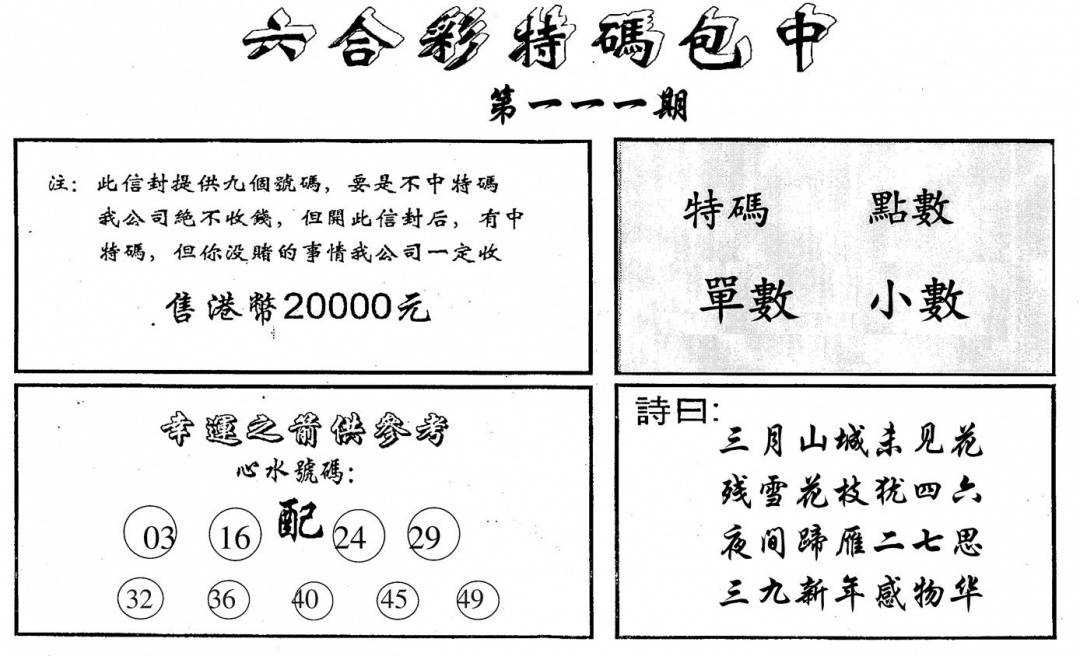 六合彩特碼包中
第一一一期
注：此信封提供九個號碼，要是不中特碼
我公司絕不收錢，但開此信封后，有中
特碼，但你没賭的事情我公司一定收
售港幣20000元
特碼 點數
單數 小數
幸運之箭供參考
心水號碼：
03 16 配 24 29
32 36 40 45 49
詩曰：
三月山城未见花
残雪花枝犹四六
夜间蹄雁二七思
三九新年感物华